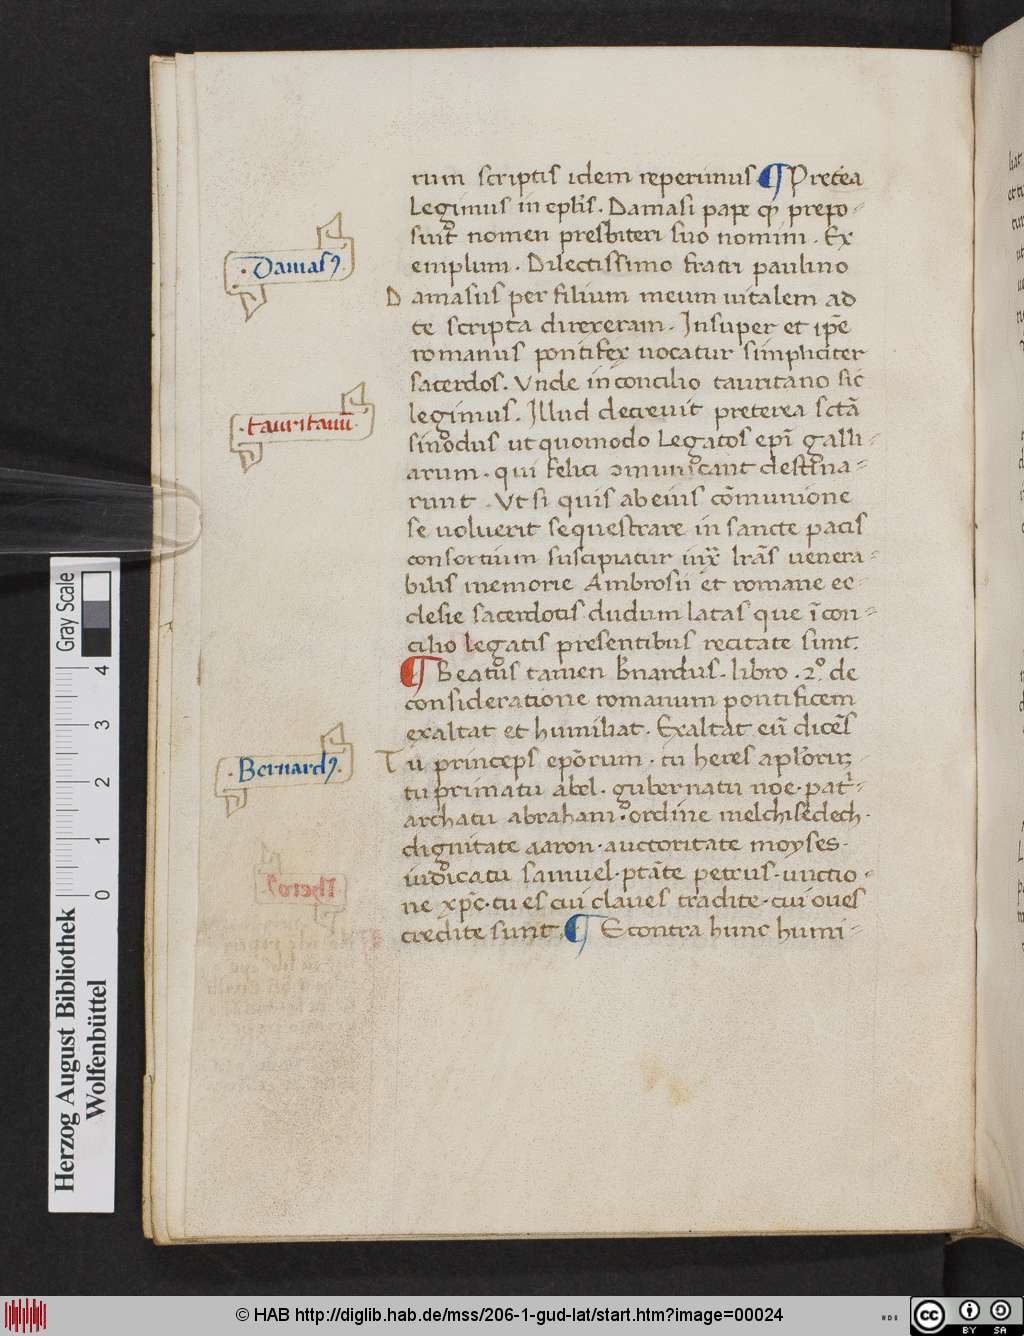 rum scriptis idem reperimus ¶ Pretea
Legimus in eplis. Damasi pape ꝙ prepo⸗
suit nomen presbiteri suo nomini. Ex
emplum. Dilectissimo fratri paulino
Damasus per filium meum uitalem ad
te scripta direxeram. Insuper et ip̄e
romanus pontifex uocatur simpliciter
sacerdos. Vnde in concilio tauritano sic
legimus. Illud decreuit preterea sctā
sinodus ut quomodo Legatos ep̄i galli⸗
arum. qui felici ꝯmunicant destina⸗
runt. Vt si quis ab eius cōmunione
se uoluerit sequestrare in sancte pacis
consortium suscipiatur lrās uenera⸗
bilis memorie Ambrosii et romane ec⸗
clesie sacerdotis dudum latas que ī con⸗
cilio legatis presentibus recitate sunt.
¶ Beatus tamen Bnardus. libro. 2º. de
consideratione romanum pontificem
exaltat et humiliat. Exaltat eū dicēs
Tu princeps epōrum. tu heres aplōrū
tu primatu abel. gubernatu noe. patr̄i⸗
archatu abraham. ordine melchisedech.
dignitate aaron. auctoritate moyses.
iudicatu samuel. ptāte petrus. unctio⸗
ne xp̄c. tu es cui claues tradite. cui oues
credite sunt. ¶ Econtra hunc humi⸗
.Damasꝰ.
.tauritanū.
.Bernardꝰ.
Herzog August Bibliothek
Wolfenbüttel
Gray Scale
0 1 2 3 4
© HAB http://diglib.hab.de/mss/206-1-gud-lat/start.htm?image=00024
cc BY SA